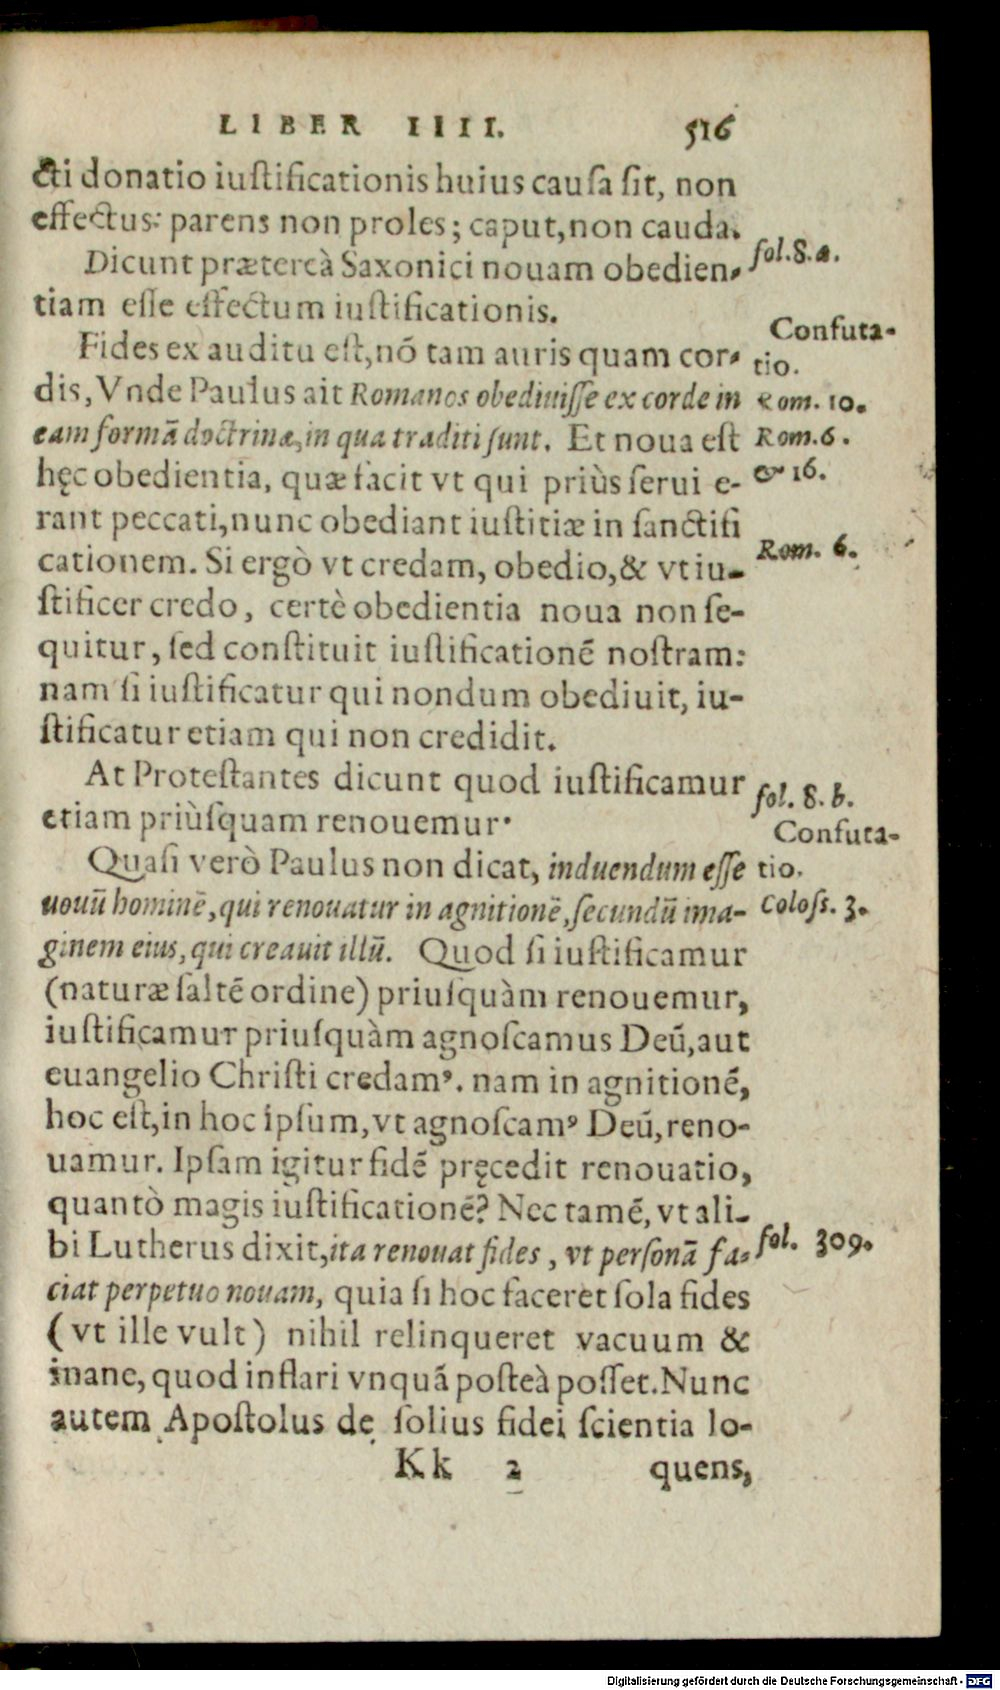 LIBER IIII. 516
cti donatio iustificationis huius causa sit, non
effectus: parens non proles; caput, non cauda.
Dicunt prætereà Saxonici nouam obedien-
fol. 8. a.
tiam esse effectum iustificationis.
Confuta-
Fides ex auditu est, nō tam auris quam cor-
tio.
dis, Vnde Paulus ait Romanos obediuisse ex corde in
Rom. 10.
eam formā doctrinæ, in qua traditi sunt. Et noua est
Rom. 6.
hęc obedientia, quæ facit vt qui priùs serui e-
& 16.
rant peccati, nunc obediant iustitiæ in sanctifi
cationem. Si ergò vt credam, obedio, & vt iu-
Rom. 6.
stificer credo, certè obedientia noua non se-
quitur, sed constituit iustificationē nostram:
nam si iustificatur qui nondum obediuit, iu-
stificatur etiam qui non credidit.
At Protestantes dicunt quod iustificamur
fol. 8. b.
etiam priùsquam renouemur.
Confuta-
Quasi verò Paulus non dicat, induendum esse
tio.
uouū hominē, qui renouatur in agnitionē, secundū ima-
Coloss. 3.
ginem eius, qui creauit illū. Quod si iustificamur
(naturæ saltē ordine) priusquàm renouemur,
iustificamur priusquàm agnoscamus Deū, aut
euangelio Christi credamꝰ. nam in agnitionē,
hoc est, in hoc ipsum, vt agnoscamꝰ Deū, reno-
uamur. Ipsam igitur fidē pręcedit renouatio,
quantò magis iustificationē? Nec tamē, vt ali-
bi Lutherus dixit, ita renouat fides, vt personā fa-
fol. 309.
ciat perpetuo nouam, quia si hoc faceret sola fides
(vt ille vult) nihil relinqueret vacuum &
inane, quod inflari vnquā posteà posset. Nunc
autem Apostolus de solius fidei scientia lo-
Kk 2 quens,
Digitalisierung gefördert durch die Deutsche Forschungsgemeinschaft - DFG